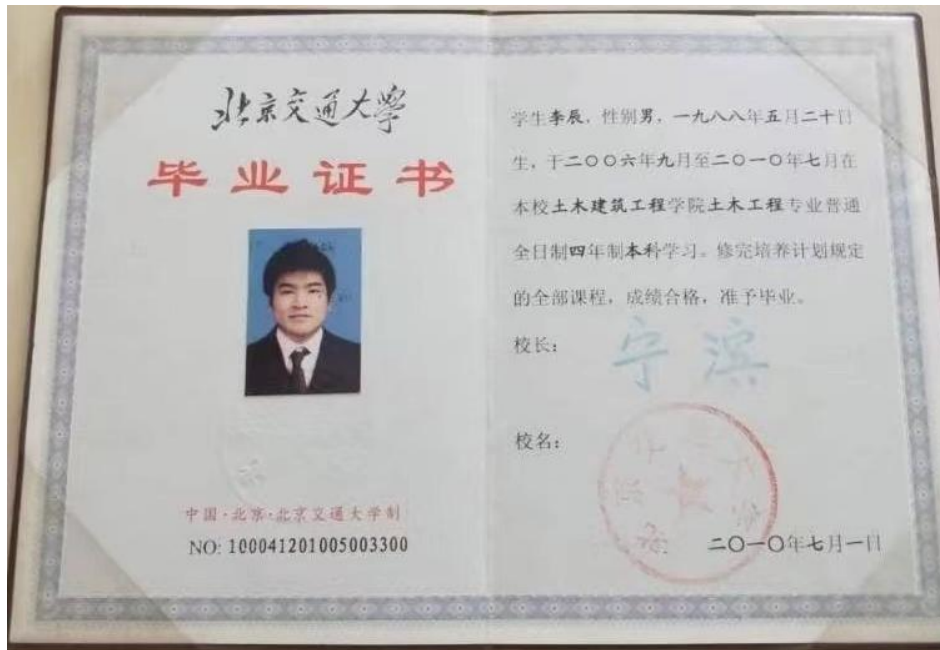 北京交通大学
毕业证书
中国·北京·北京交通大学制
NO: 100041201005003300
学生李辰，性别男，一九八八年五月二十日
生，于二〇〇六年九月至二〇一〇年七月在
本校土木建筑工程学院土木工程专业普通
全日制四年制本科学习。修完培养计划规定
的全部课程，成绩合格，准予毕业。
校长：
宁滨
校名：
二〇一〇年七月一日